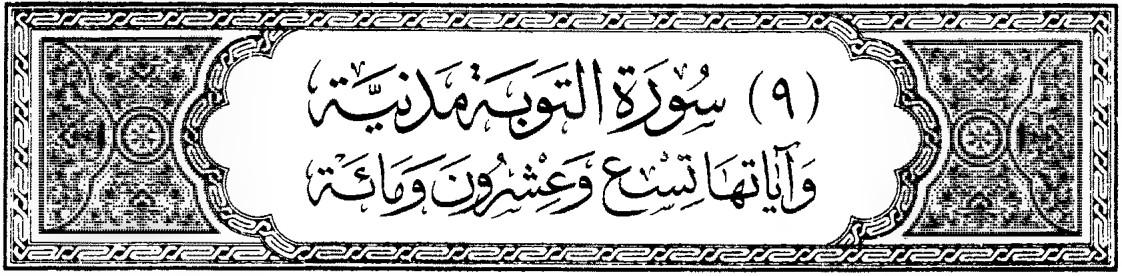 (٩) سُورَةُ التَّوبَةِ مَدَنِيَّة
وَآيَاتهَا تِسْع وَعِشْرُونَ وَمَائَة